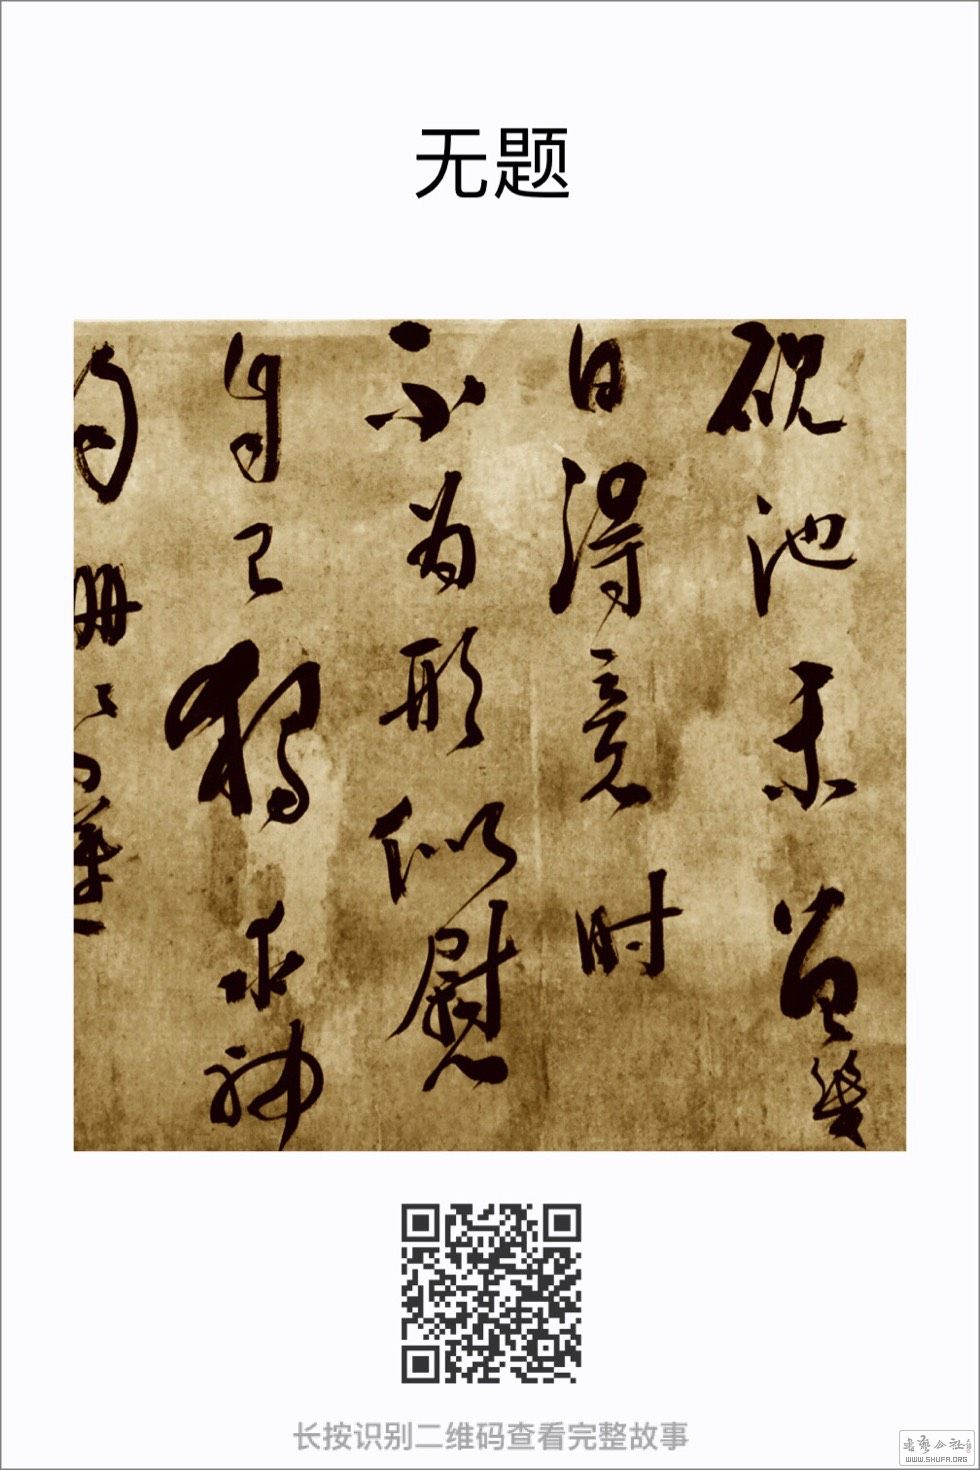 无题
砚池未曾几
日得意时
不为形似慰
自己独求神
长按识别二维码查看完整故事
书艺公社
WWW.SHUFA.ORG